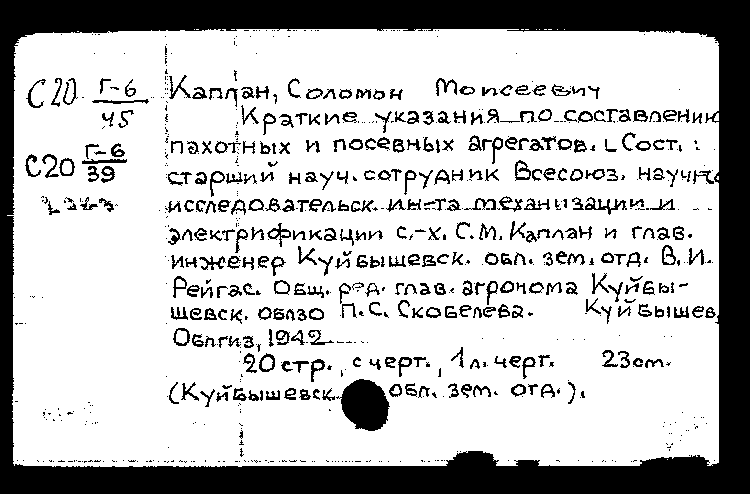 С20 Г-6/45
С20 Г-6/39
Каплан, Соломон Моисеевич
Краткие указания по составлению
пахотных и посевных агрегатов. [Сост. :
старший науч. сотрудник Всесоюз. научно-
исследовательск. ин-та механизации и
электрификации с.-х. С.М. Каплан и глав.
инженер Куйбышевск. обл. зем. отд. В. И.
Рейгас. Общ. ред. глав. агронома Куйбы-
шевск. облзо П.С. Скобелева. Куйбышев,
Облгиз, 1942
20 стр., с черт., 1 л. черт. 23 см.
(Куйбышевск. обл. зем. отд.).